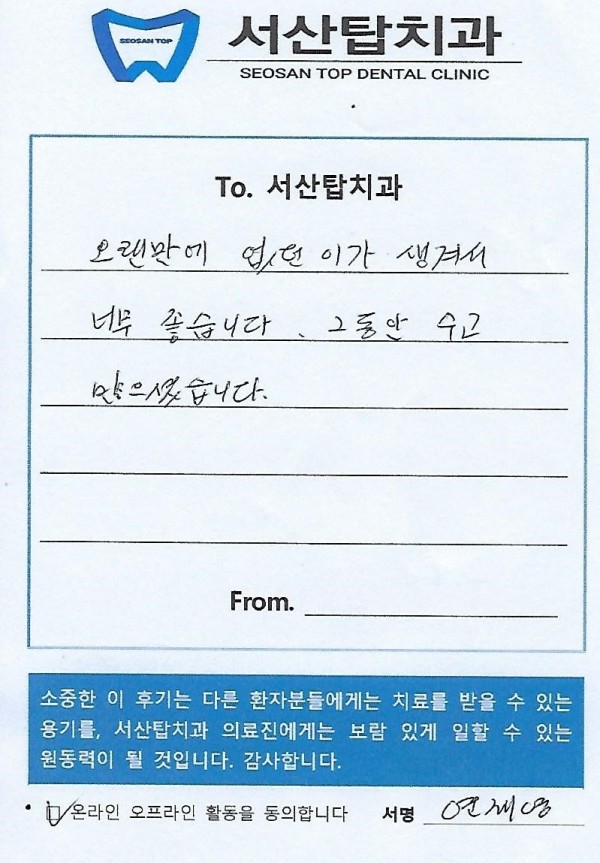 SEOSAN TOP
서산탑치과
SEOSAN TOP DENTAL CLINIC
To. 서산탑치과
오랜만에 없던 이가 생겨서
너무 좋습니다. 그동안 수고
많으셨습니다.
From.
소중한 이 후기는 다른 환자분들에게는 치료를 받을 수 있는
용기를, 서산탑치과 의료진에게는 보람 있게 일할 수 있는
원동력이 될 것입니다. 감사합니다.
온라인 오프라인 활동을 동의합니다 서명